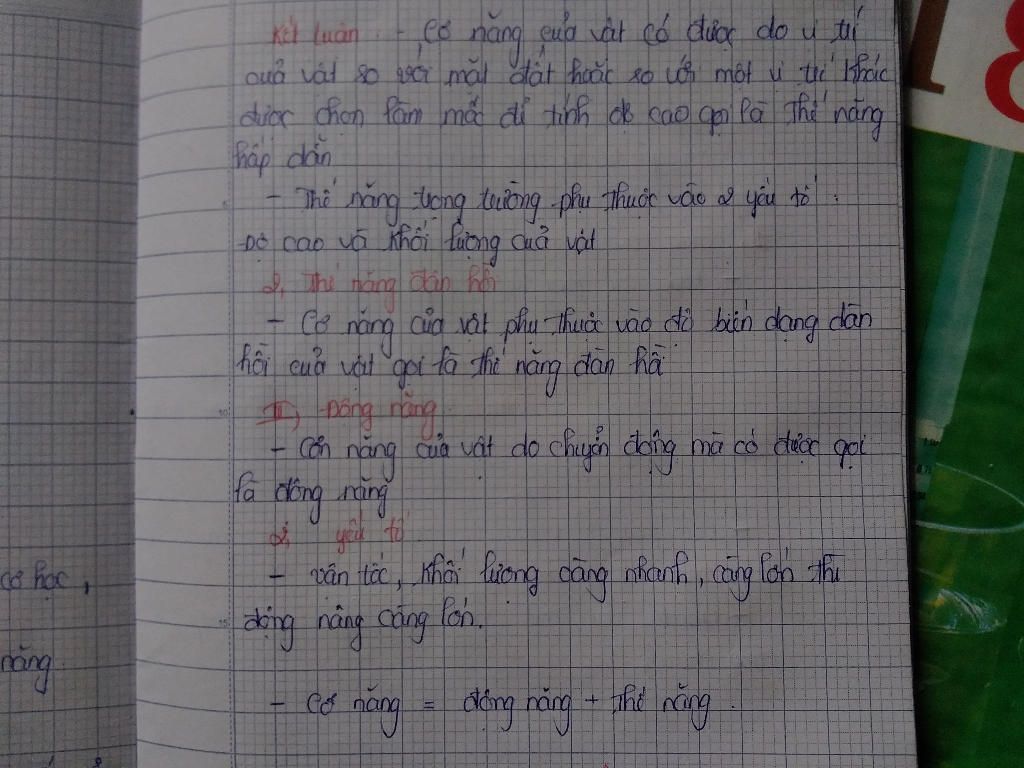 Kết luận - Cơ năng của vật có được do vị trí
của vật so với mặt đất hoặc so với một vị trí khác
được chọn làm mốc để tính độ cao gọi là thế năng
hấp dẫn
- Thế năng trọng trường phụ thuộc vào 2 yếu tố :
Độ cao và khối lượng của vật
2, Thế năng đàn hồi
- Cơ năng của vật phụ thuộc vào độ biến dạng đàn
hồi của vật gọi là thế năng đàn hồi
III, Động năng
- Cơn năng của vật do chuyển động mà có được gọi
là động năng
2, yếu tố
- vận tốc, khối lượng càng nhanh, càng lớn thì
động năng càng lớn.
- Cơ năng = động năng + thế năng.
cơ học,
năng
18